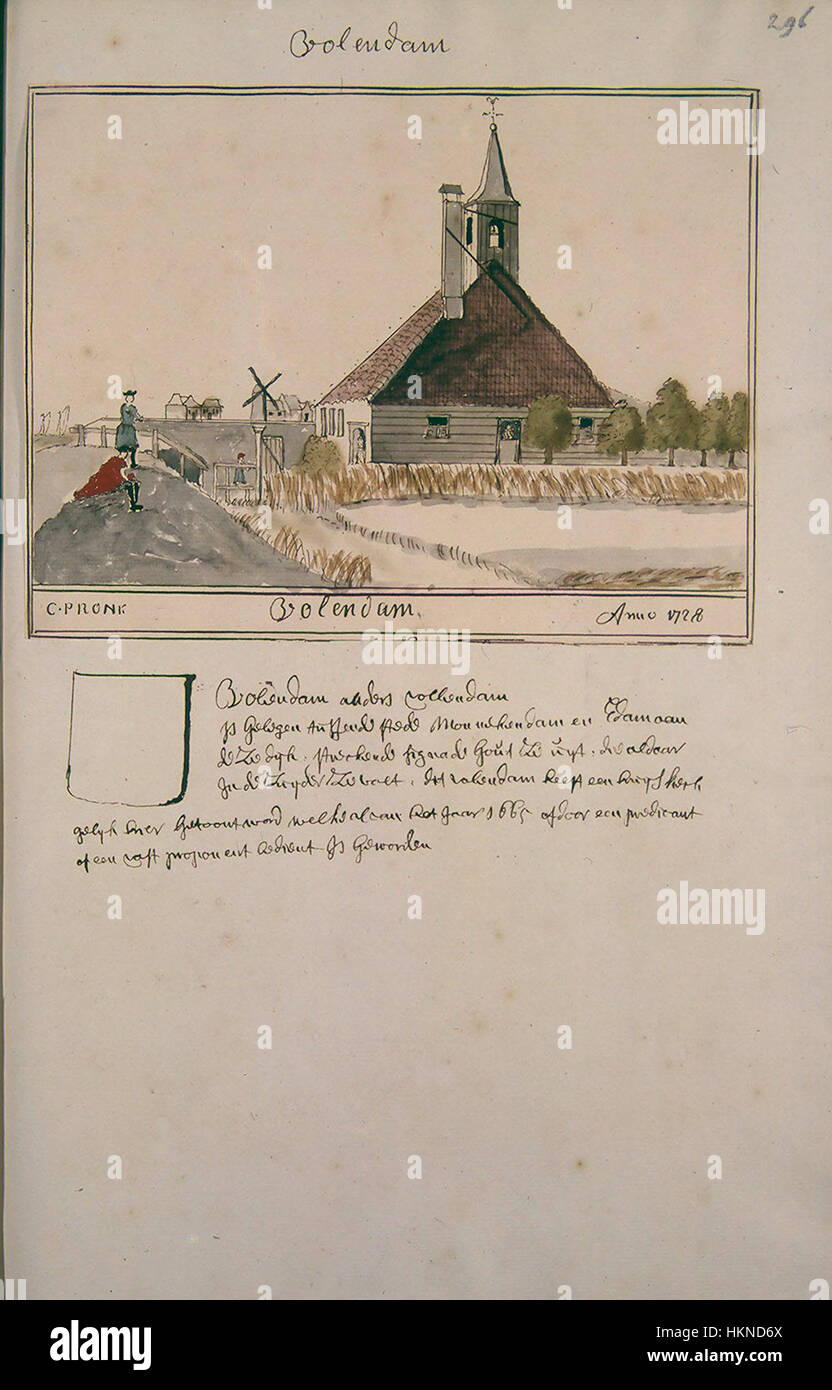 296
Volendam
C·PRONK Volendam. Anno 1728
Volendam anders vollendam
is gelegen tussende stede Monnekendam en Edam aan
de Zedyk, streckende sig na de Gout Ze uyt, die aldaar
In de Zuyder Ze valt, dit volendam heeft een kerk
gelyk hier getoont word welke al van het Jaar 1665 of door een predicant
of een vast proponent bedient is geworden
alamy
Image ID: HKND6X
www.alamy.com